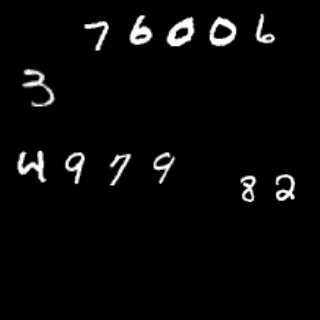 76006
3
4979
82